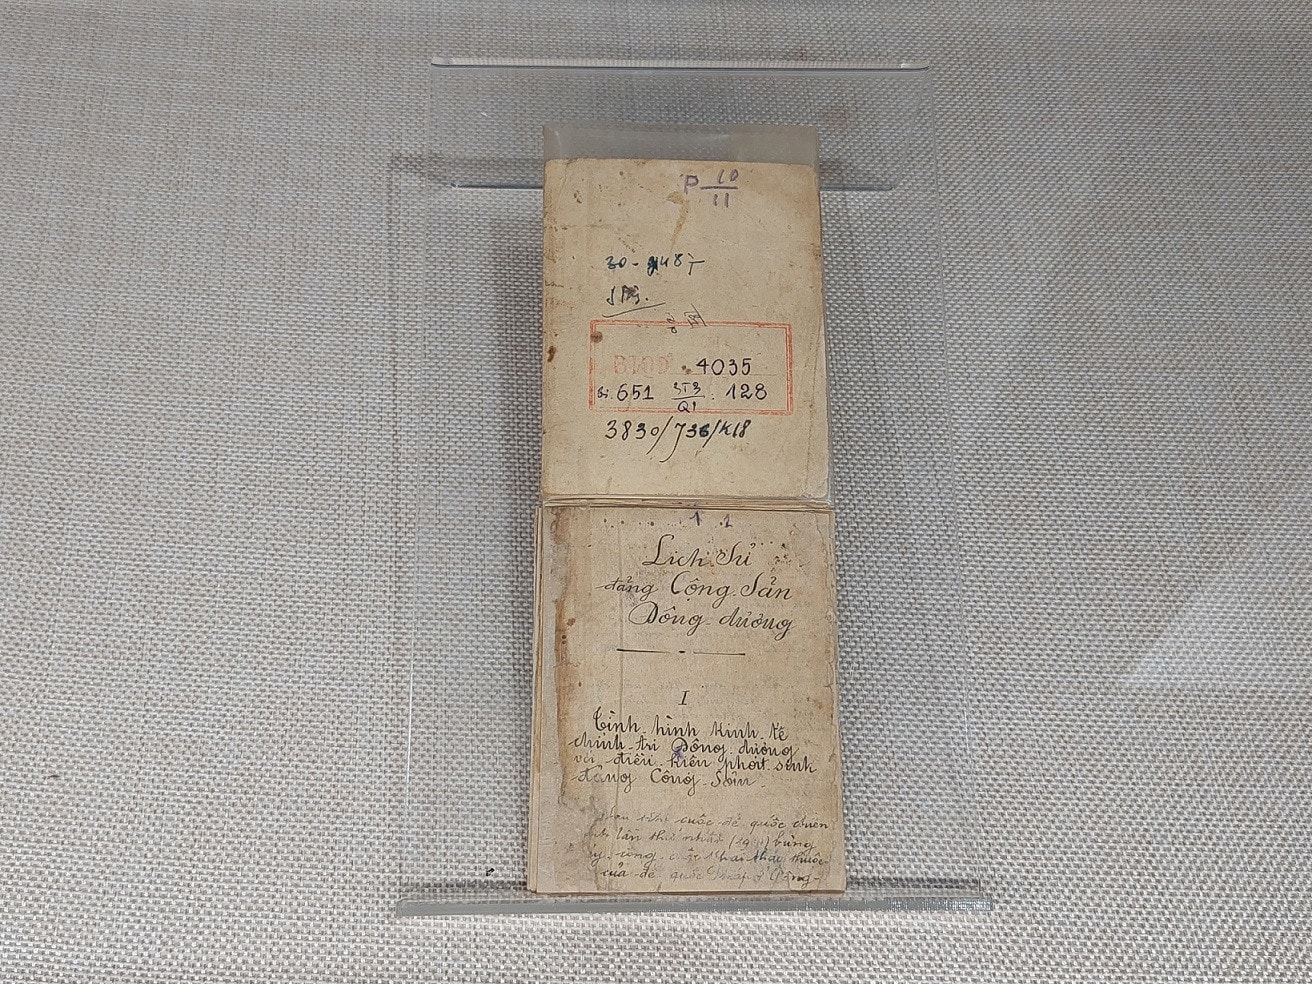 P 10
11
30-
BTCĐ 4035
651 3T3 128
Q1
3830/736/K18
1 1
Lịch Sử
đảng Cộng Sản
Đông-dương
I
Tình-hình Kinh-tế
chính-trị Đông-dương
với điều-kiện phát-sinh
đảng Cộng-Sản.
cuộc đế-quốc chiến
lần thứ nhất (19 ) bùng
công-cuộc khai-thác thuộc
của đế-quốc Pháp ở Đông-